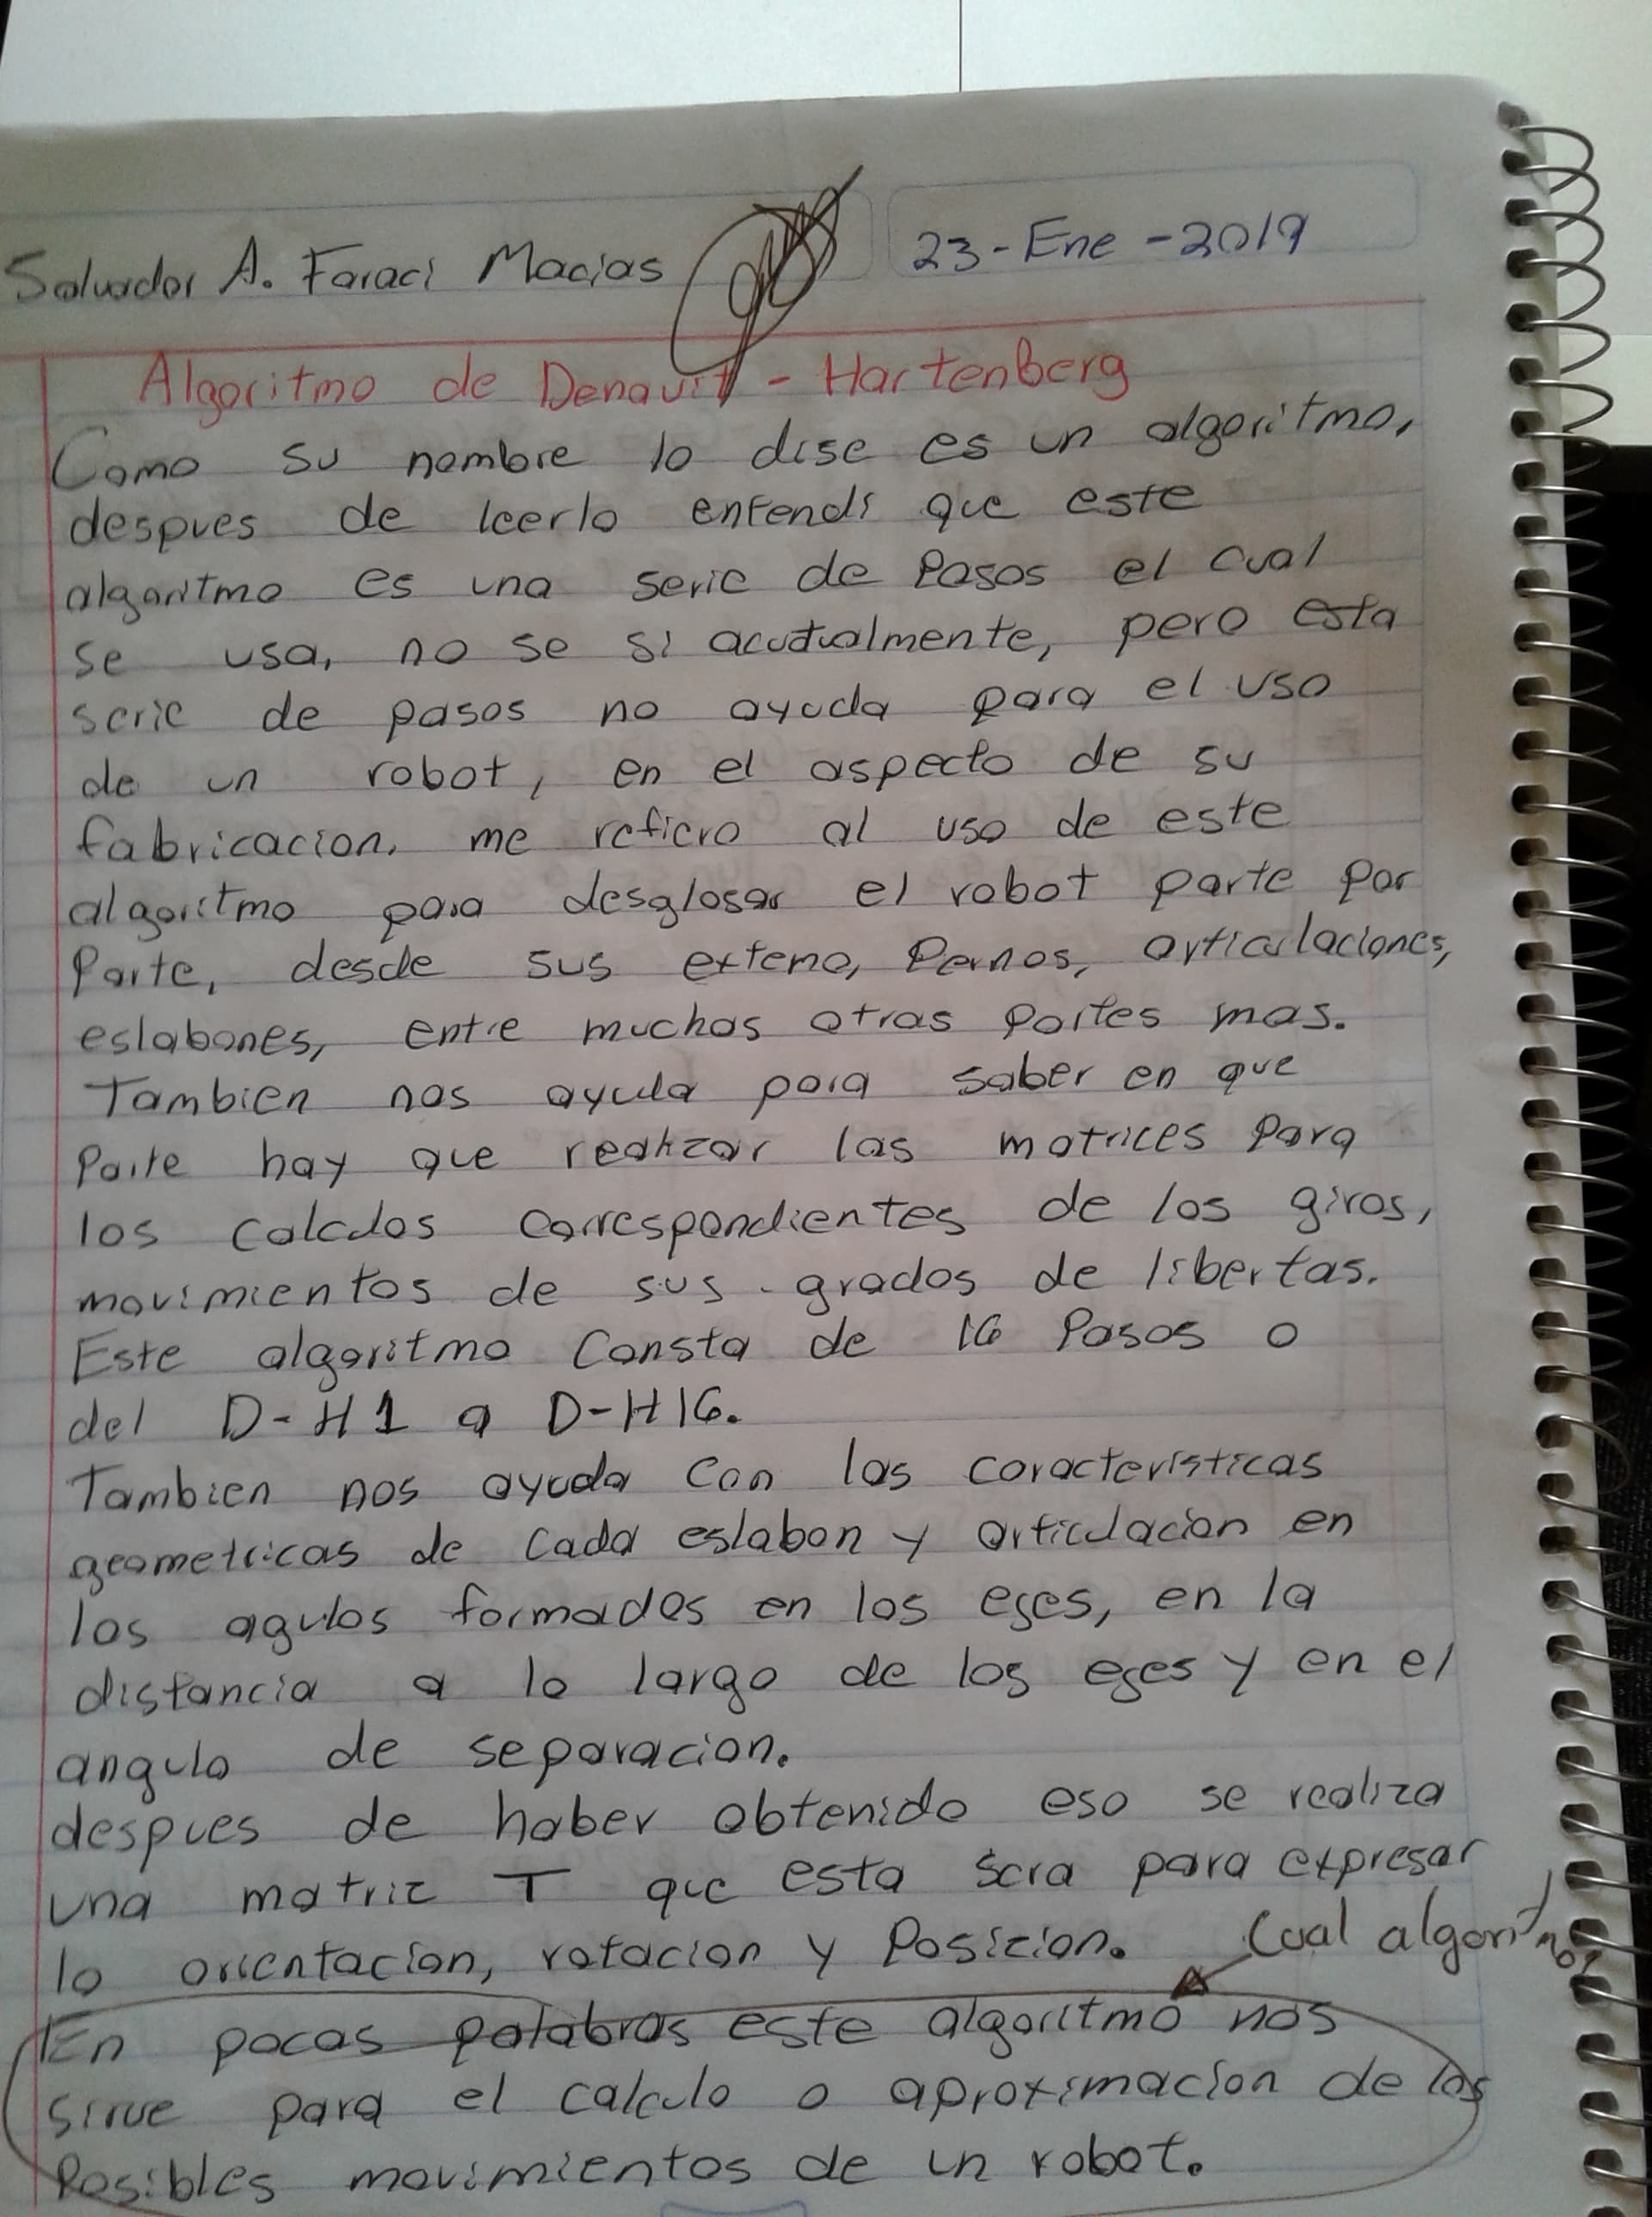 Salvador A. Faraci Macias
23-Ene-2019
Algoritmo de Denavit-Hartenberg
Como su nombre lo dise es un algoritmo,
despues de leerlo entendi que este
algoritmo es una serie de Pasos el cual
se usa, no se si acutualmente, pero esta
serie de pasos no ayuda para el uso
de un robot, en el aspecto de su
fabricacion, me refiero al uso de este
algoritmo para desglosar el robot parte por
Parte, desde sus exteno, Pernos, articulaciones,
eslabones, entre muchas otras partes mas.
Tambien nos ayuda para saber en que
Parte hay que realizar las matrices Para
los calculos correspondientes de los giros,
movimientos de sus grados de libertas.
Este algoritmo Consta de 16 Pasos o
del D-H1 a D-H16.
Tambien nos ayuda Con las caracteristicas
geometricas de Cada eslabon y articulacion en
los agulos formados en los ejes, en la
distancia a lo largo de los ejes y en el
angulo de separacion.
despues de haber obtenido eso se realiza
una matriz T que esta sera para expresar
lo orientacion, rotacion y Posicion.
Cual algoritmo,
En pocas palabras este algoritmo nos
sirve para el calculo o aproximacion de los
Posibles movimientos de un robot.